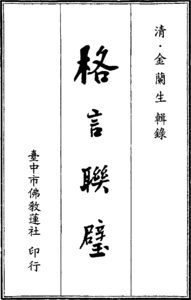 清·金蘭生 輯錄
格言聯璧
臺中市佛教蓮社 印行